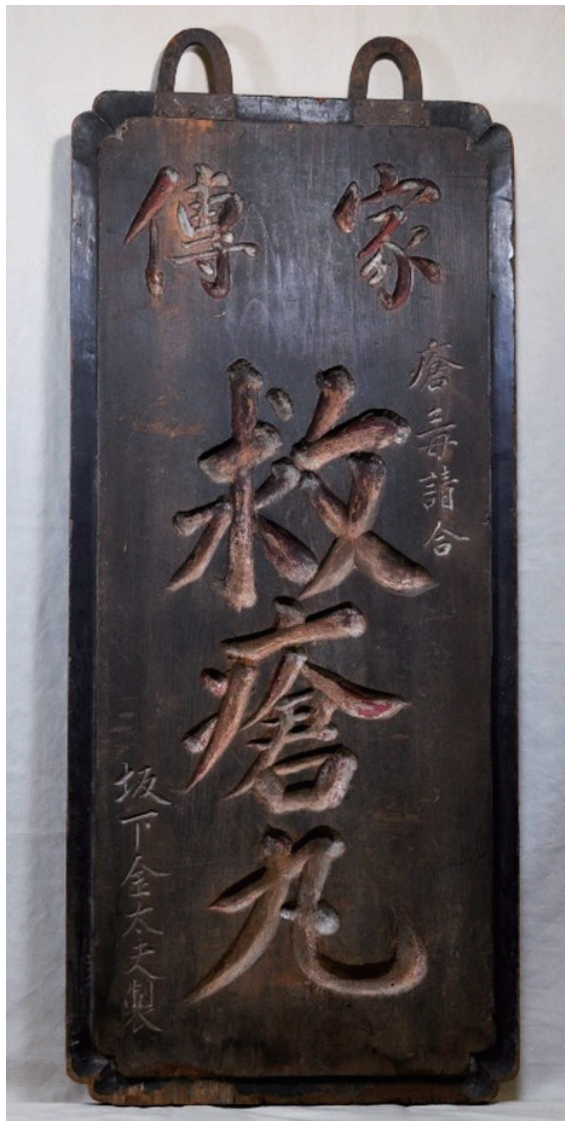 家傳
瘡毒請合
救瘡丸
坂下金太夫製